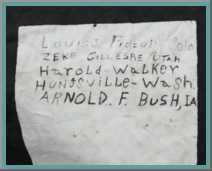 Louis
ZEKE GILLESPIE UTAH
Harold-Walker
HUNTSVILLE-WASH.
ARNOLD. F. BUSH, IA